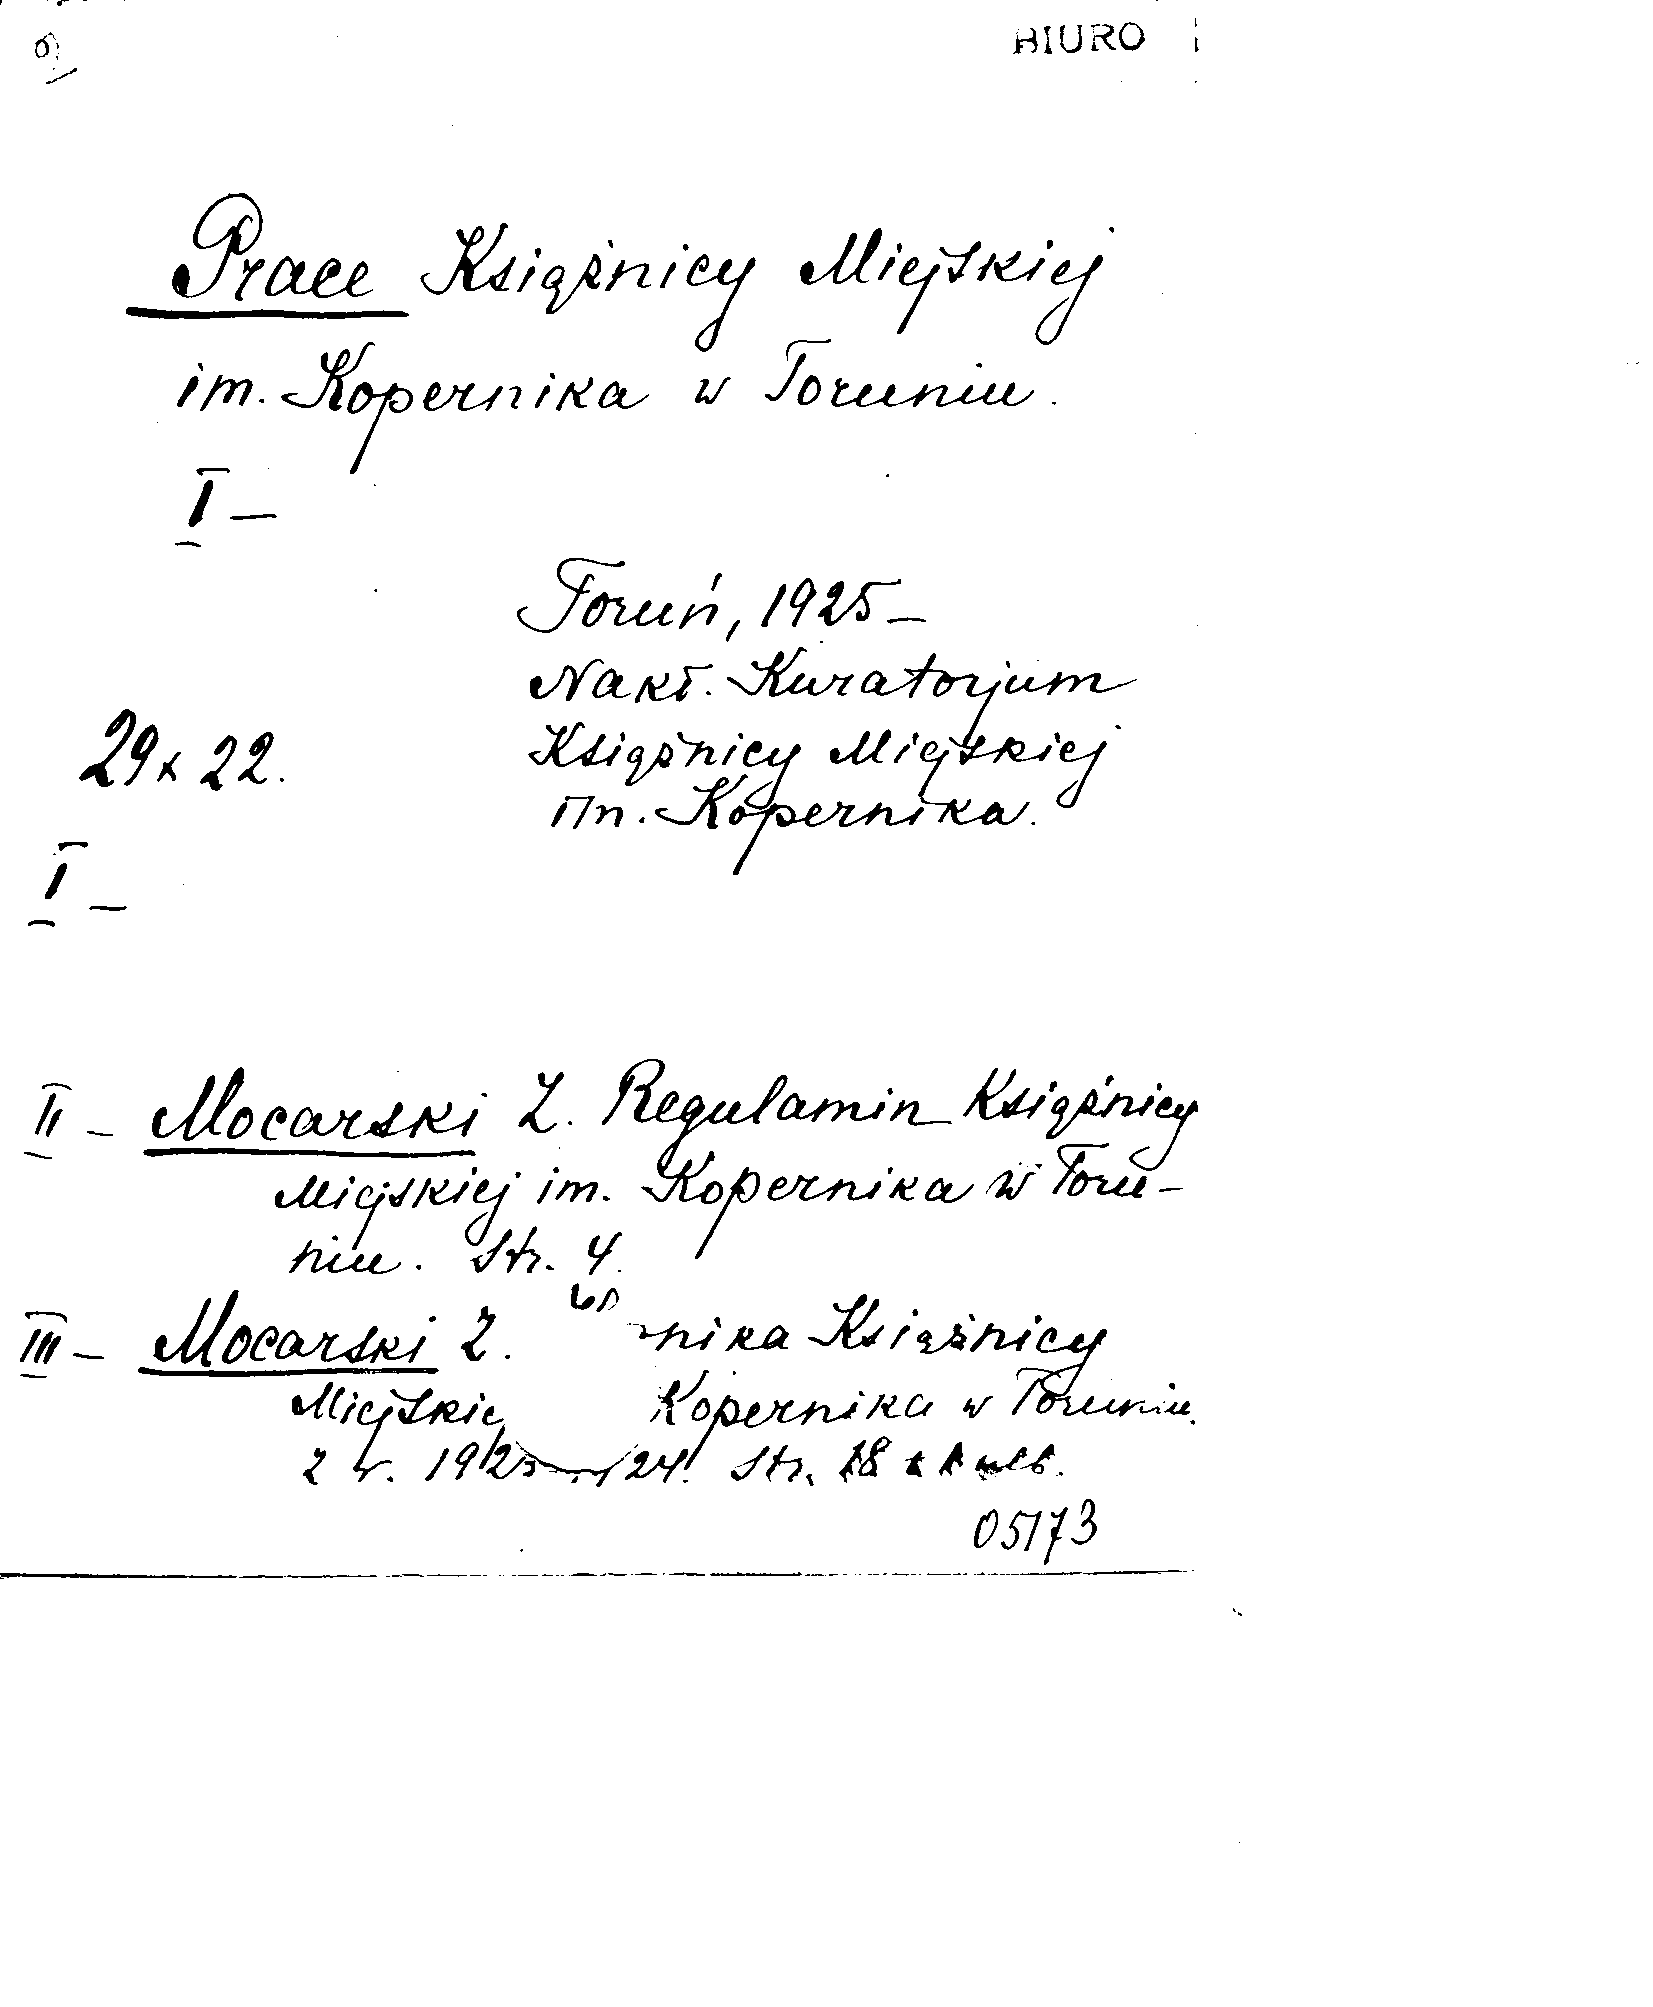 BIURO
Prace Książnicy Miejskiej
im. Kopernika w Toruniu.
I —
Toruń, 1925 —
Nakł. Kuratorjum
29 x 22. Książnicy Miejskiej
im. Kopernika.
I —
II — Mocarski Z. Regulamin Książnicy
Miejskiej im. Kopernika w Toru-
niu. Str. 4.
III — Mocarski Z. nika Książnicy
Miejskie Kopernika w Toruniu.
z r. 1923 24. Str. 18 nlb.
05173